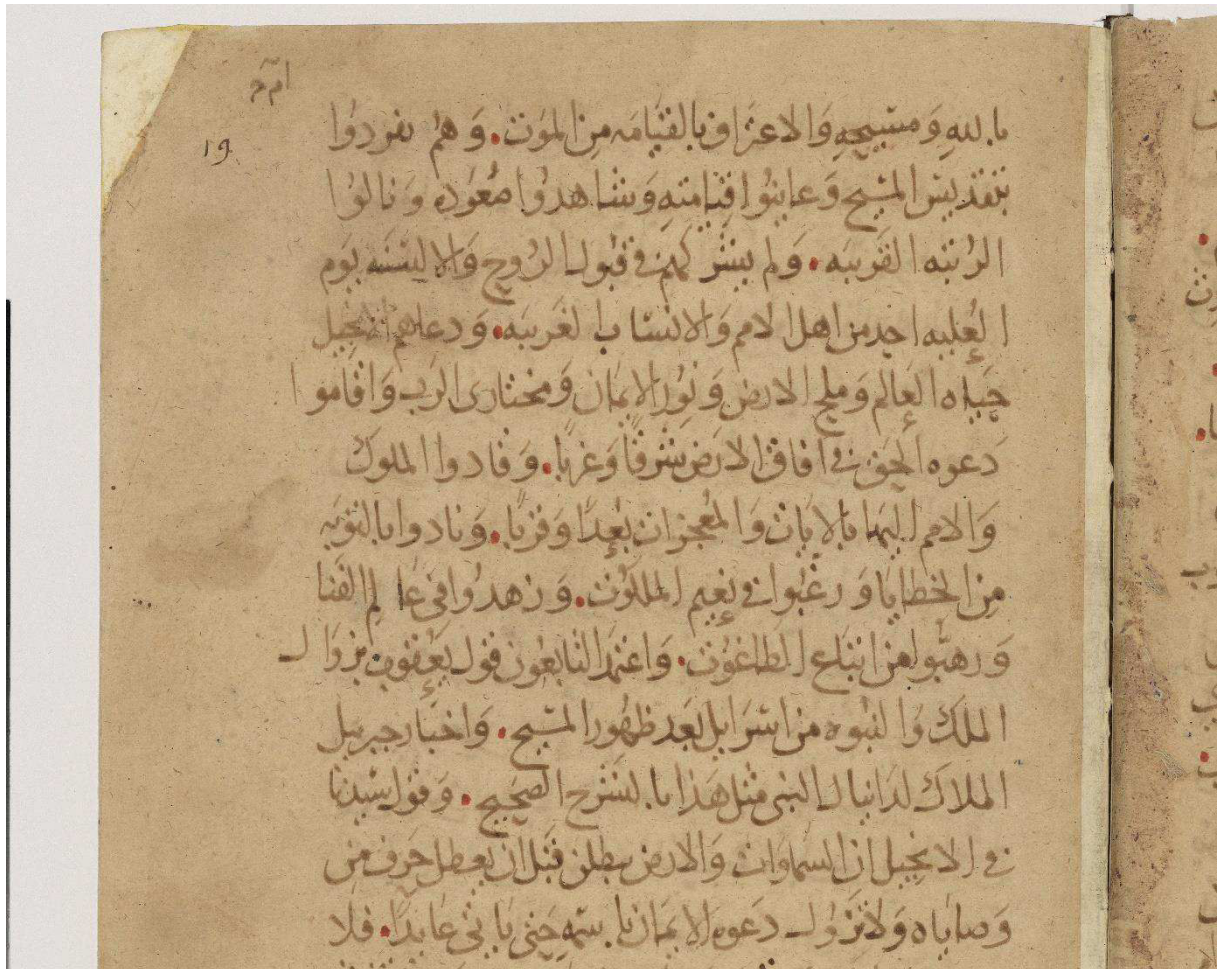 19
بالله ومسيحه والاعتراف بالقيامه من الموت. وهم تفردوا
بتقديس المسيح وعاينوا قيامته وشاهدوا صعوده ونالوا
الرتبه القريبه. ولم يشركهم في قبول الروح والالسنه يوم
العليه احد من اهل الامم والانساب الغريبه. ودعاهم الانجيل
حياه العالم وملح الارض ونور الايمان ومختاري الرب واقاموا
دعوه الحق في افاق الارض شرقا وغربا. وقادوا الملوك
والامم اليها بالايات والمعجزات بعدا وقربا. ونادوا بالتوبه
من الخطايا ورغبوا في نعيم الملكوت. وزهدوا في عالم الفنا
ورهبوا من اتباع الطاغوت. واعتمد التابعون قول يعقوب بزوال
الملك والنبوه من اسرايل بعد ظهور المسيح. واخبار جبريل
الملاك لدانيال النبي مثل هذا بالشرح الصحيح. وقول سيدنا
في الانجيل ان السماوات والارض يبطلن قبل ان يعطل حرف من
وصاياه ولا تزول دعوه الايمان باسمه حتى ياتي عايدا. فلا